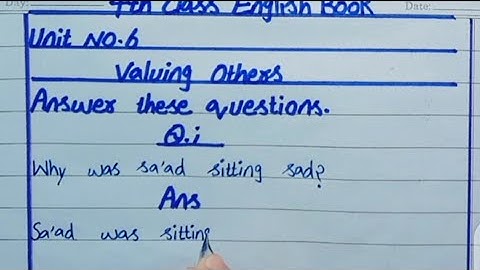 Day: Date:
7th Class English Book
Unit NO.6
Valuing Others
Answer these questions.
Q.i
Why was sa'ad sitting sad?
Ans
Sa'ad was sitting